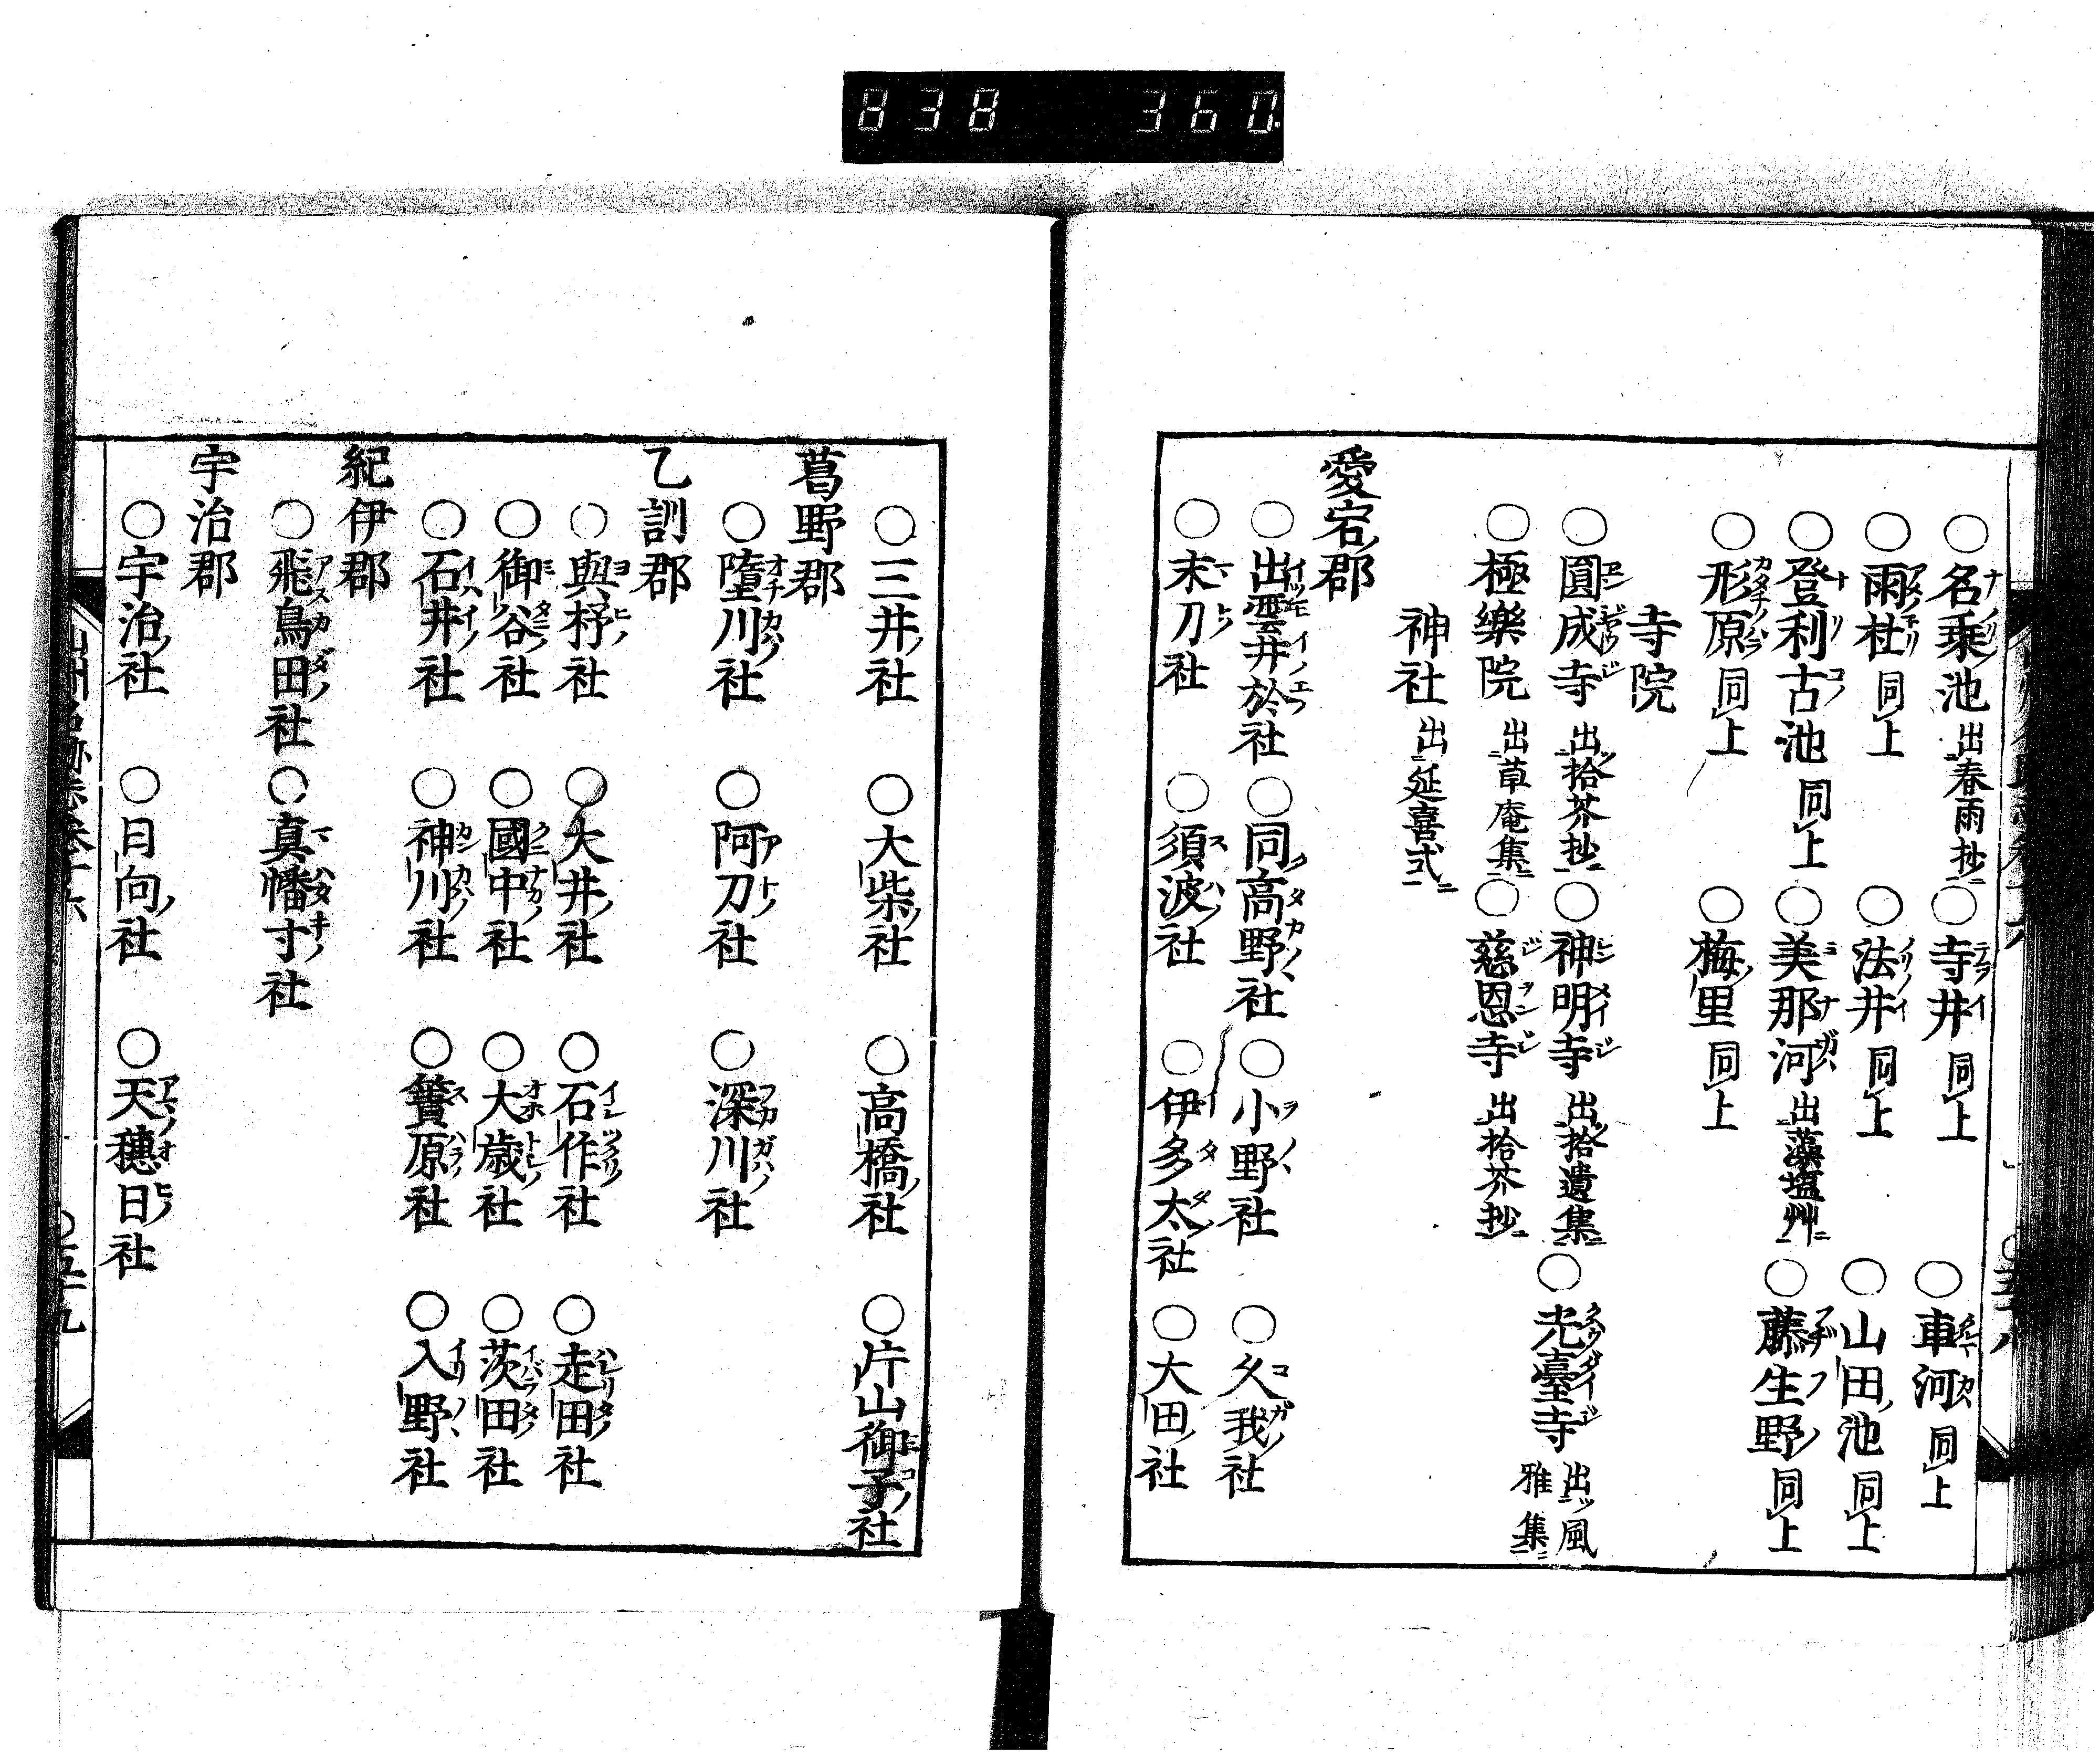 838 360
○名乗池出春雨抄ニ○寺井同上○車河同上
○雨杜同上○法井同上○山田池同上
○登利古池同上○美那河出藻塩艸ニ○藤生野同上
○形原同上○梅里同上
寺院
○圓成寺出拾芥抄ニ○神明寺出拾遺集ニ○光臺寺出風雅集ニ
○極樂院出草庵集ニ○慈恩寺出拾芥抄ニ
神社出延喜式ニ
愛宕郡
○出雲井於社○同高野社○小野社○久我社
○末刀社○須波社○伊多太社○大田社
○三井社○大柴社○高橋社○片山御子社
葛野郡
○墮川社○阿刀社○深川社
乙訓郡
○與杼社○大井社○石作社○走田社
○御谷社○國中社○大歳社○茨田社
○石井社○神川社○簀原社○入野社
紀伊郡
○飛鳥田社○真幡寸社
宇治郡
○宇治社○日向社○天穗日社